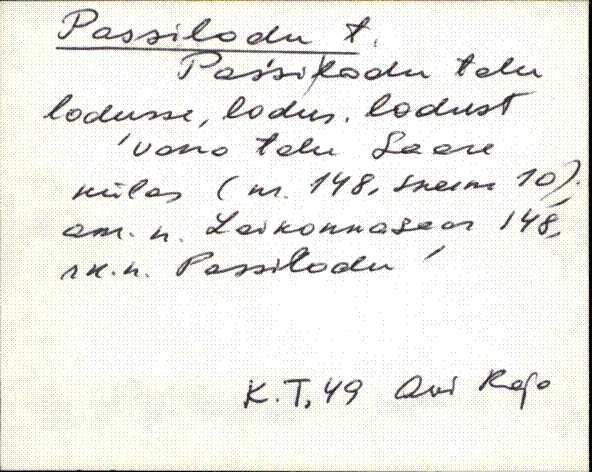 Passilodu t.
Paśsilodu talu
lodusse, lodus, lodust
'vana talu Saare
külas (nr. 148, skeem 10).
am. n. 148,
rk.n. Passilodu'
K.T, 49 Ovi Rajo